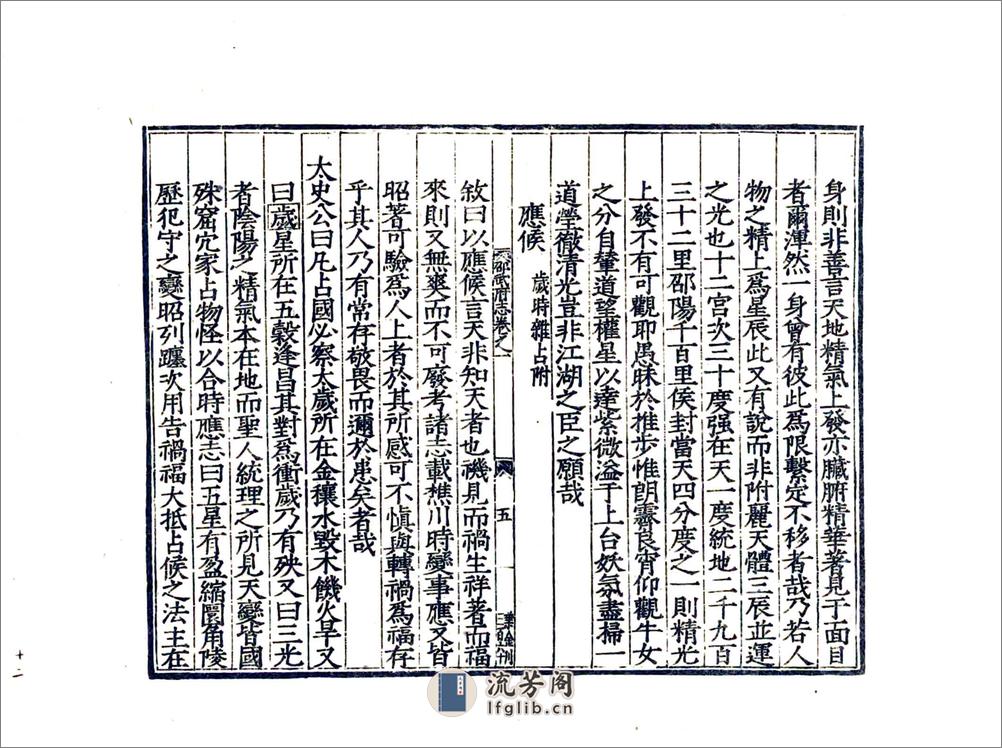 身則非善言天地精氣上發亦臟腑精華著見于面目
者爾渾然一身曾有彼此爲限繫定不移者哉乃若人
物之精上爲星辰此又有說而非附麗天體三辰並運
之光也十二宮次三十度强在天一度統地二千九百
三十二里邵陽千百里侯封當天四分度之一則精光
上發不有可觀耶愚昧於推步惟朗霽良宵仰觀牛女
之分自輦道望權星以達紫微溢于上台妖氛盡掃一
道瑩徹清光豈非江湖之臣之願哉
應候 歲時雜占附
邵武府志卷之一 五
敘曰以應候言天非知天者也禨見而禍生祥著而福
來則又無爽而不可廢考諸志載樵川時變事應又皆
昭著可驗爲人上者於其所感可不慎與轉禍爲福存
乎其人乃有常存敬畏而邇於患矣者哉
太史公曰凡占國必察太歲所在金穰水毀木饑火旱又
曰歲星所在五穀逢昌其對爲衝歲乃有殃又曰三光
者陰陽之精氣本在地而聖人統理之所見天變皆國
殊窟穴家占物怪以合時應志曰五星有盈縮圜角陵
歷犯守之變昭列躔次用告禍福大抵占候之法主在
十二
流芳阁
lfglib.cn